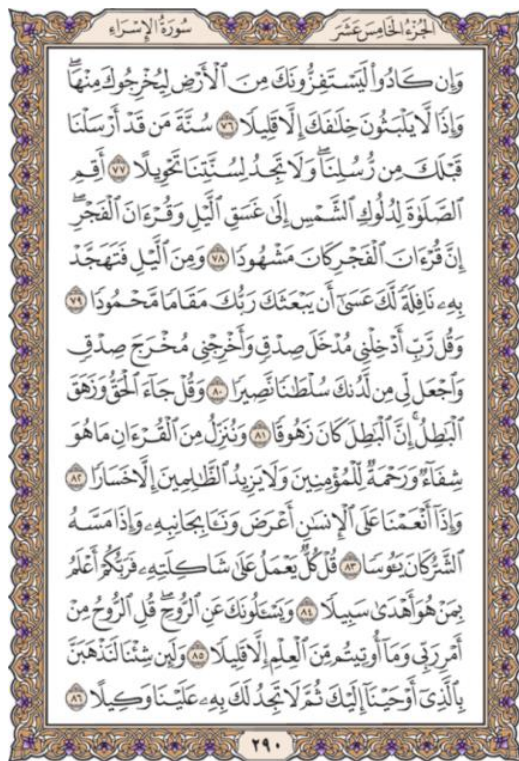 الجُزْءُ الخَامِسَ عَشَرَ
سُورَةُ الإِسْرَاءِ
وَإِن كَادُوا۟ لَيَسْتَفِزُّونَكَ مِنَ ٱلْأَرْضِ لِيُخْرِجُوكَ مِنْهَا ۖ
وَإِذًا لَّا يَلْبَثُونَ خِلَـٰفَكَ إِلَّا قَلِيلًا ٧٦ سُنَّةَ مَن قَدْ أَرْسَلْنَا
قَبْلَكَ مِن رُّسُلِنَا ۖ وَلَا تَجِدُ لِسُنَّتِنَا تَحْوِيلًا ٧٧ أَقِمِ
ٱلصَّلَوٰةَ لِدُلُوكِ ٱلشَّمْسِ إِلَىٰ غَسَقِ ٱلَّيْلِ وَقُرْءَانَ ٱلْفَجْرِ ۖ
إِنَّ قُرْءَانَ ٱلْفَجْرِ كَانَ مَشْهُودًا ٧٨ وَمِنَ ٱلَّيْلِ فَتَهَجَّدْ
بِهِۦ نَافِلَةً لَّكَ عَسَىٰٓ أَن يَبْعَثَكَ رَبُّكَ مَقَامًا مَّحْمُودًا ٧٩
وَقُل رَّبِّ أَدْخِلْنِى مُدْخَلَ صِدْقٍ وَأَخْرِجْنِى مُخْرَجَ صِدْقٍ
وَٱجْعَل لِّى مِن لَّدُنكَ سُلْطَـٰنًا نَّصِيرًا ٨٠ وَقُلْ جَآءَ ٱلْحَقُّ وَزَهَقَ
ٱلْبَـٰطِلُ ۚ إِنَّ ٱلْبَـٰطِلَ كَانَ زَهُوقًا ٨١ وَنُنَزِّلُ مِنَ ٱلْقُرْءَانِ مَا هُوَ
شِفَآءٌ وَرَحْمَةٌ لِّلْمُؤْمِنِينَ وَلَا يَزِيدُ ٱلظَّـٰلِمِينَ إِلَّا خَسَارًا ٨٢
وَإِذَآ أَنْعَمْنَا عَلَى ٱلْإِنسَـٰنِ أَعْرَضَ وَنَـَٔا بِجَانِبِهِۦ وَإِذَا مَسَّهُ
ٱلشَّرُّ كَانَ يَـُٔوسًا ٨٣ قُلْ كُلٌّ يَعْمَلُ عَلَىٰ شَاكِلَتِهِۦ فَرَبُّكُمْ أَعْلَمُ
بِمَنْ هُوَ أَهْدَىٰ سَبِيلًا ٨٤ وَيَسْـَٔلُونَكَ عَنِ ٱلرُّوحِ ۖ قُلِ ٱلرُّوحُ مِنْ
أَمْرِ رَبِّى وَمَآ أُوتِيتُم مِّنَ ٱلْعِلْمِ إِلَّا قَلِيلًا ٨٥ وَلَئِن شِئْنَا لَنَذْهَبَنَّ
بِٱلَّذِىٓ أَوْحَيْنَآ إِلَيْكَ ثُمَّ لَا تَجِدُ لَكَ بِهِۦ عَلَيْنَا وَكِيلًا ٨٦
٢٩٠